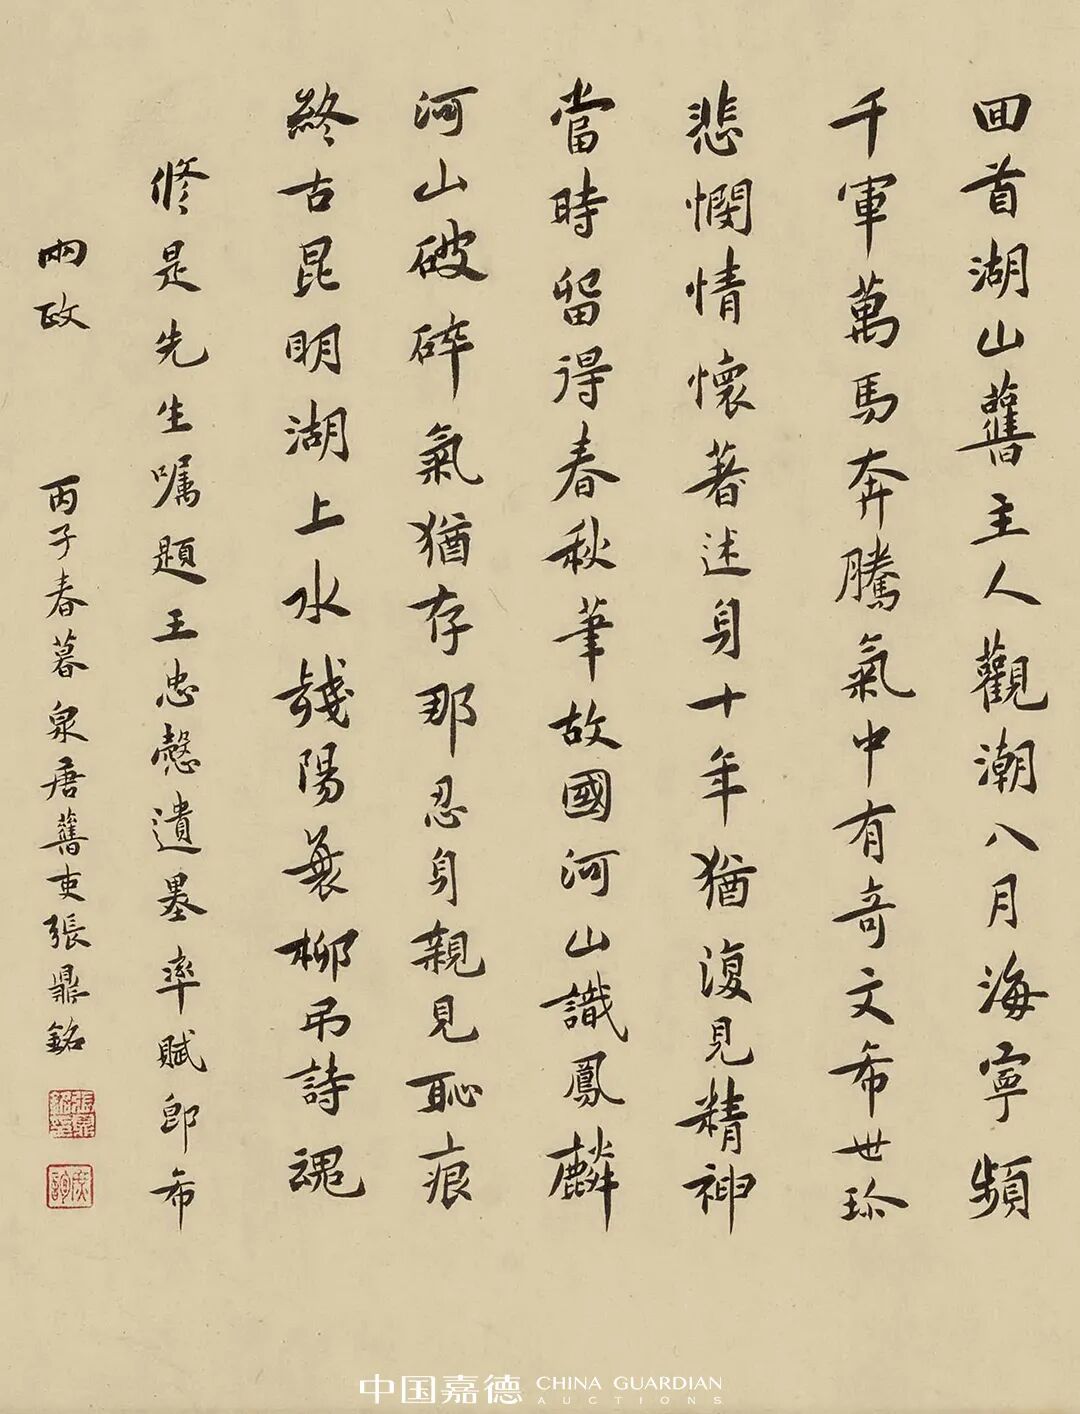 回首湖山舊主人觀潮八月海寧頻
千軍萬馬奔騰氣中有奇文希世珍
悲憫情懷著述身十年猶復見精神
當時留得春秋筆故國河山識鳳麟
河山破碎氣猶存那忍身親見恥痕
終古昆明湖上水殘陽衰柳弔詩魂
修是先生嘱題王忠慤遺墨率賦即希
兩政
丙子春暮泉唐舊吏張鼎銘
中国嘉德 CHINA GUARDIAN
AUCTIONS